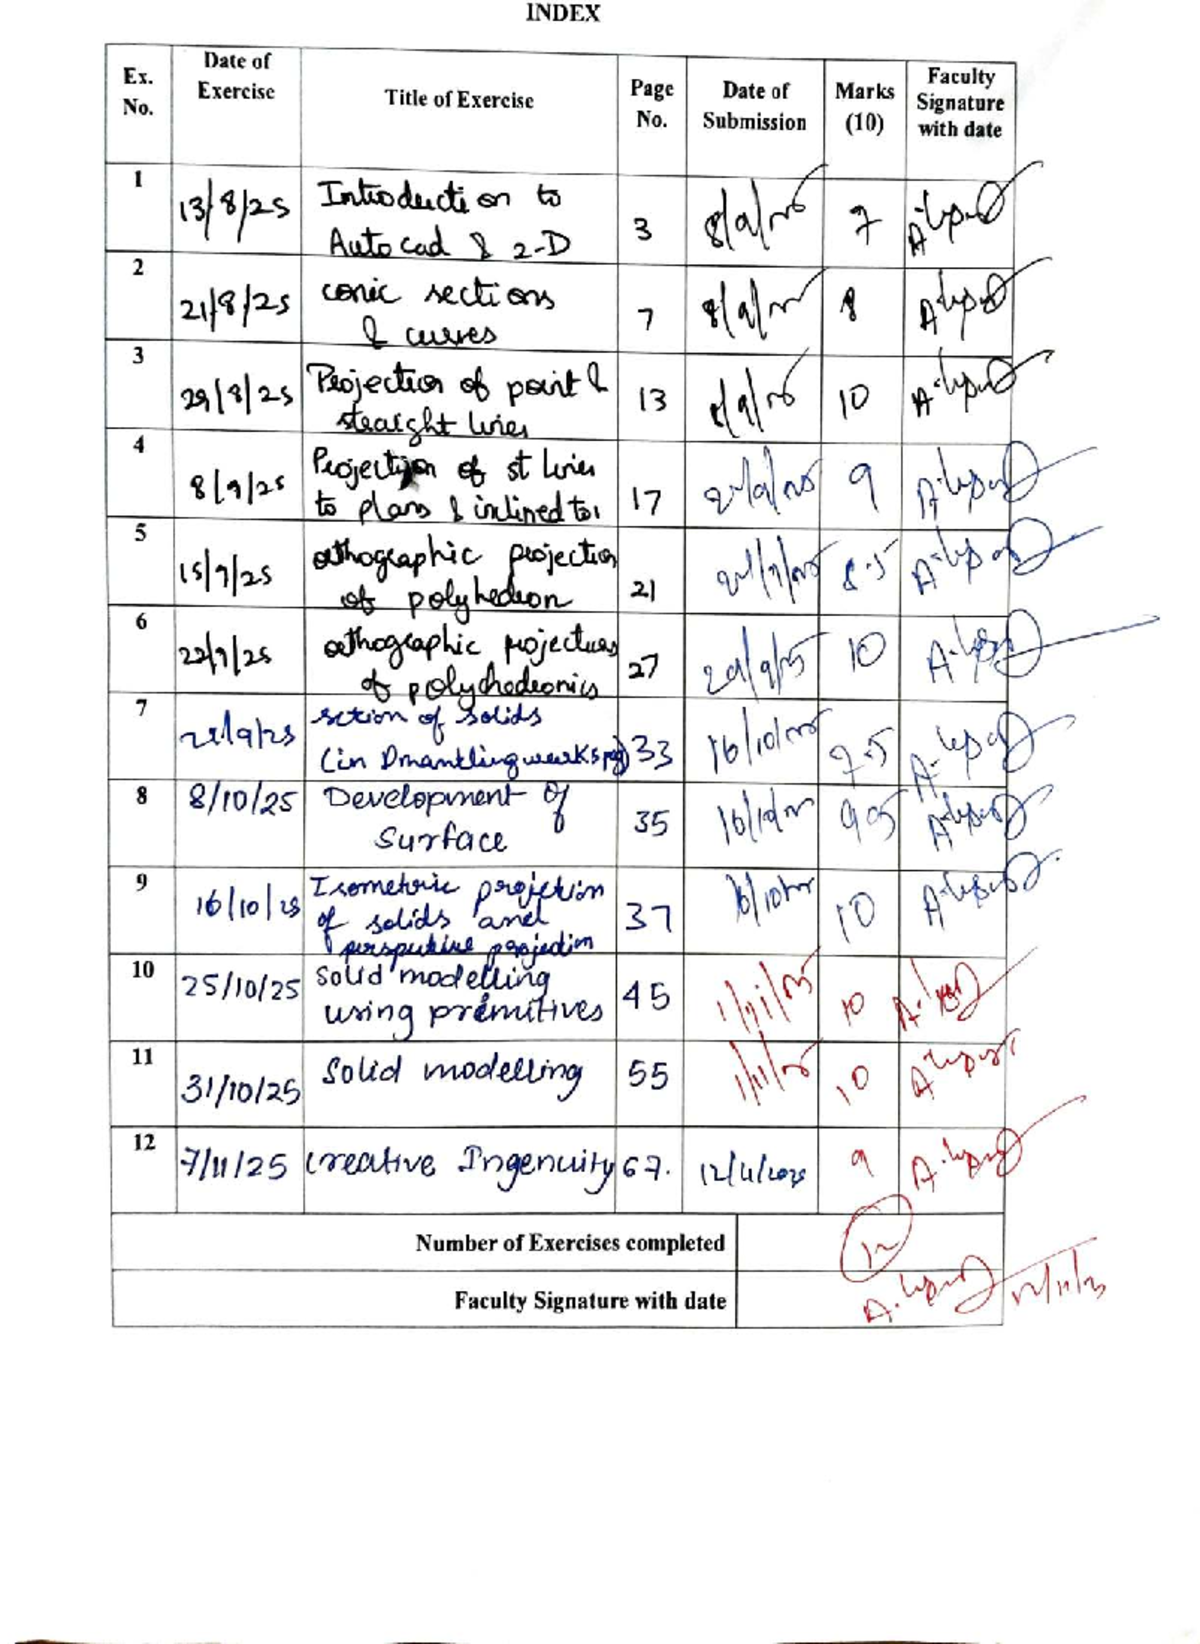 INDEX
Ex. No. Date of Exercise Title of Exercise Page No. Date of Submission Marks (10) Faculty Signature with date
1 13/8/25 Introduction to 3 8/9/25 7
Autocad & 2-D
2 21/8/25 conic sections 7 8/9/25 8
& curves
3 29/8/25 Projection of point & 13 8/9/25 10
straight lines
4 8/9/25 Projection of st lines 17 9
to plans & inlined to
5 15/9/25 orthographic projection 21 8.5
of polyhedron
6 22/9/25 orthographic 27 29/9/25 10
of
7 section of solids 33 16/10/25
(in
8 8/10/25 Development of 35 16/10/25 9.5
Surface
9 16/10/25 Isometric projection 37 16/10/25 10
of solids and
perspective projection
10 25/10/25 Solid modelling 45 1/11/25 10
using primitives
11 31/10/25 Solid modelling 55 1/11/25 10
12 7/11/25 Creative Ingenuity 67. 12/11/2025 9
Number of Exercises completed 12
Faculty Signature with date 12/11/25